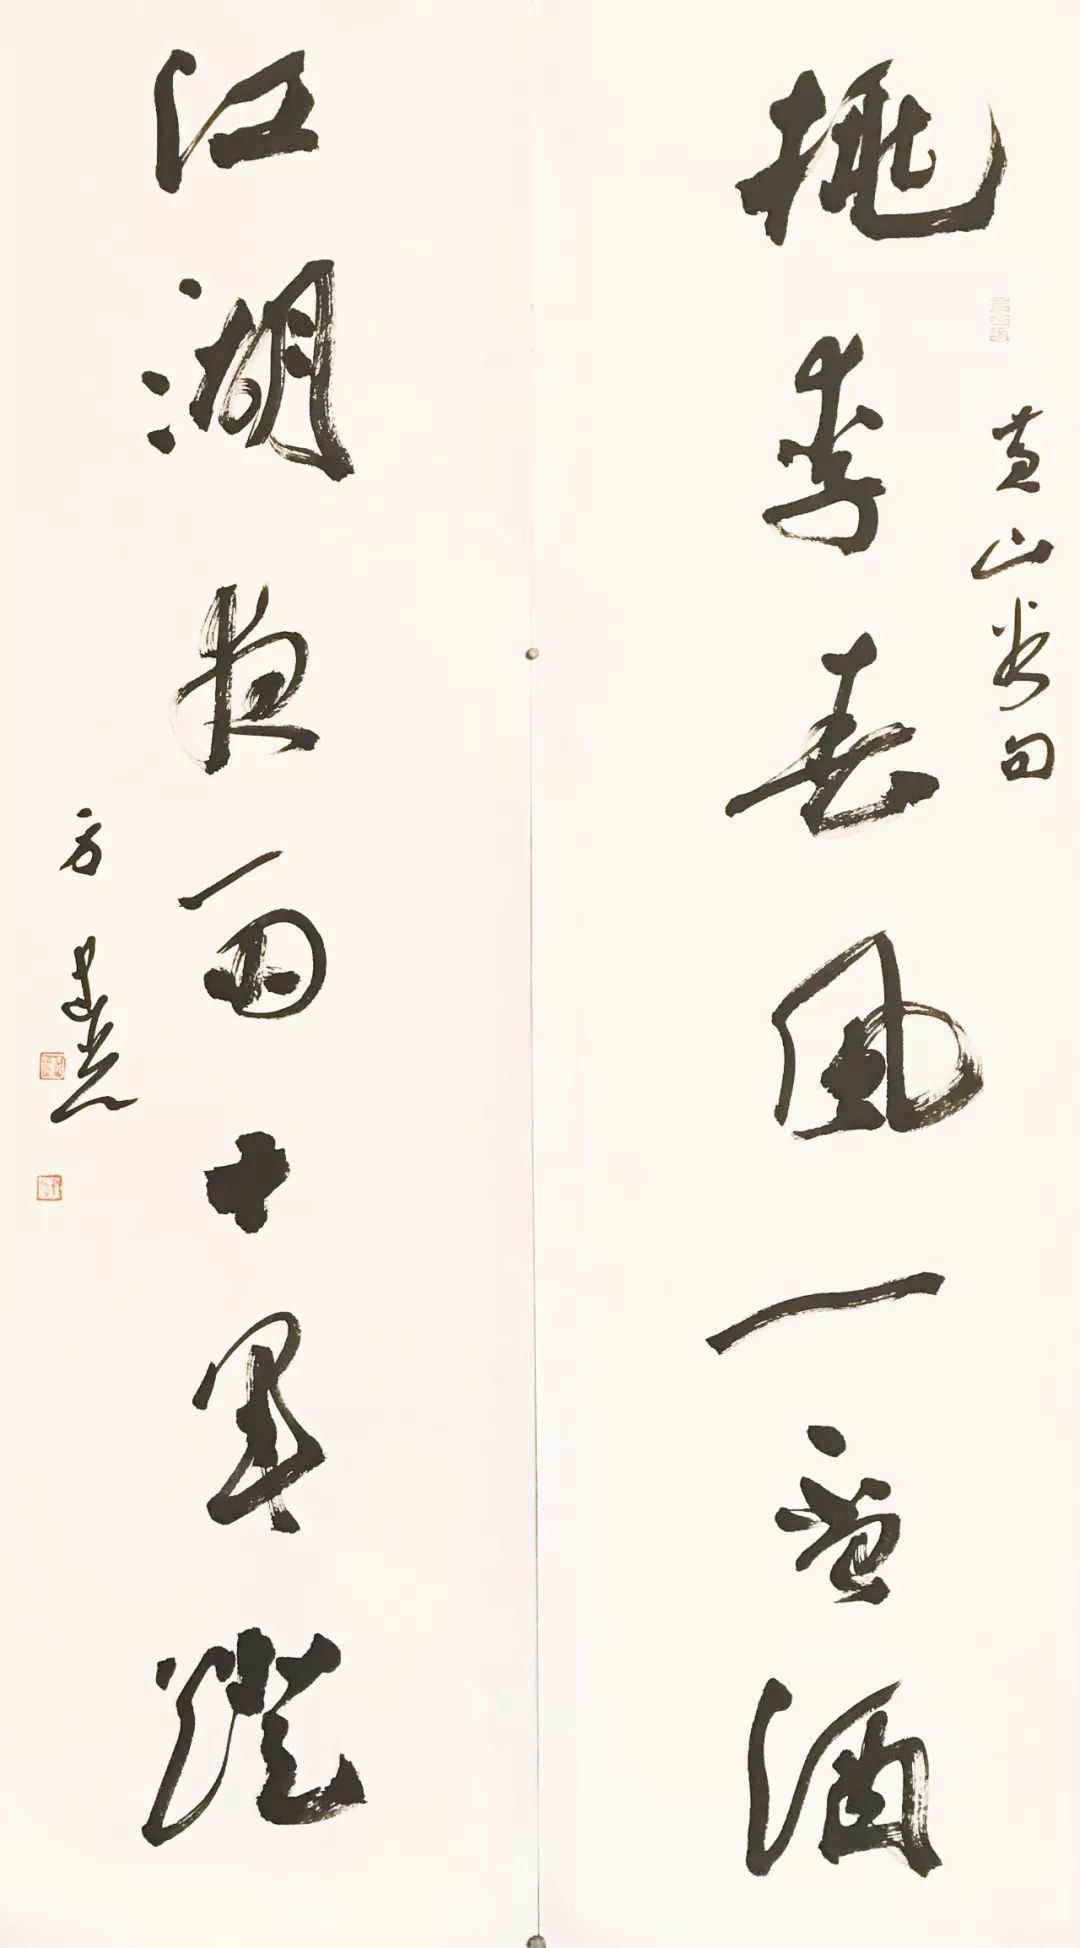 黄山谷句
桃李春風一盃酒
江湖夜雨十年燈
方建光